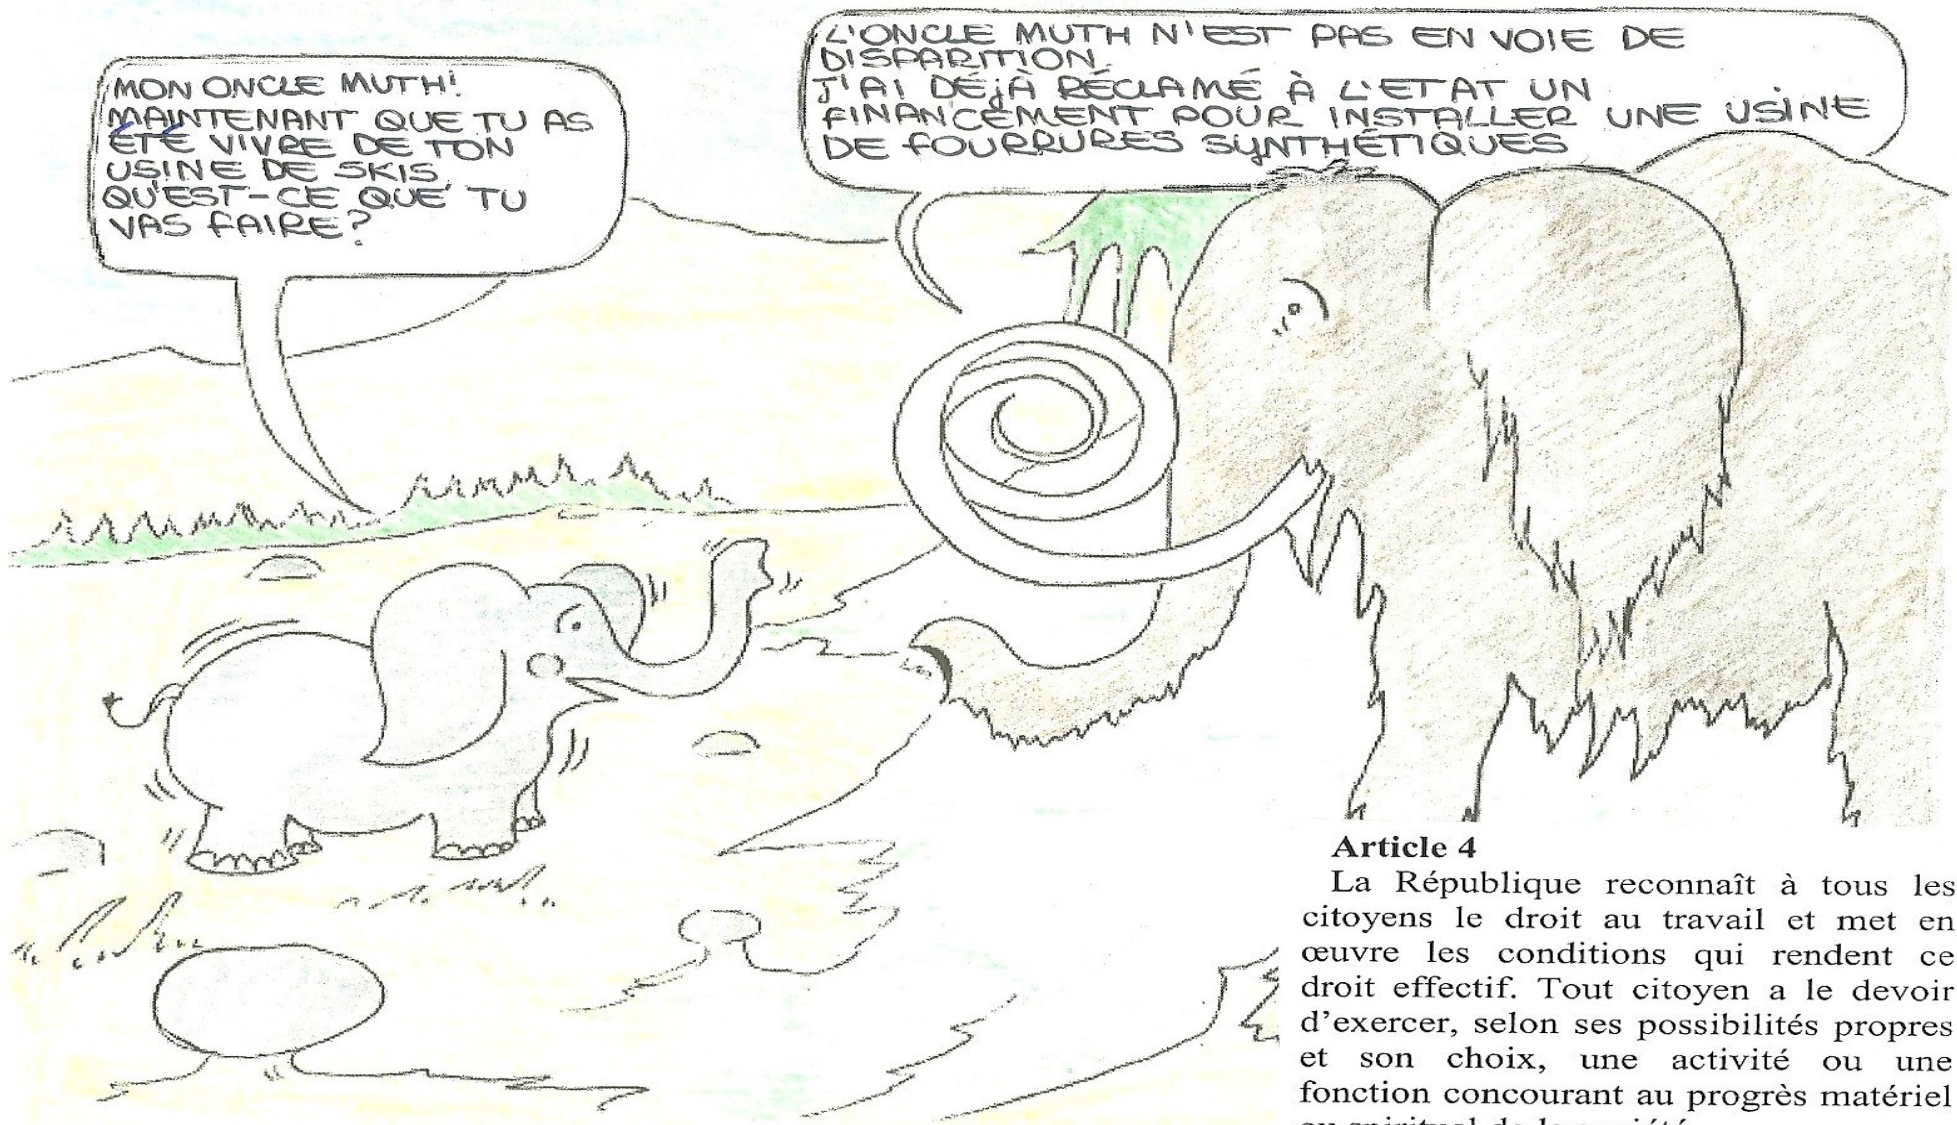 MON ONCLE MUTH!
MAINTENANT QUE TU AS
ÉTÉ VIVRE DE TON
USINE DE SKIS
QU'EST-CE QUE TU
VAS FAIRE?
L'ONCLE MUTH N'EST PAS EN VOIE DE
DISPARITION.
J'AI DÉJÀ RÉCLAMÉ À L'ETAT UN
FINANCEMENT POUR INSTALLER UNE USINE
DE FOURRURES SYNTHÉTIQUES
Article 4
La République reconnaît à tous les
citoyens le droit au travail et met en
œuvre les conditions qui rendent ce
droit effectif. Tout citoyen a le devoir
d'exercer, selon ses possibilités propres
et son choix, une activité ou une
fonction concourant au progrès matériel